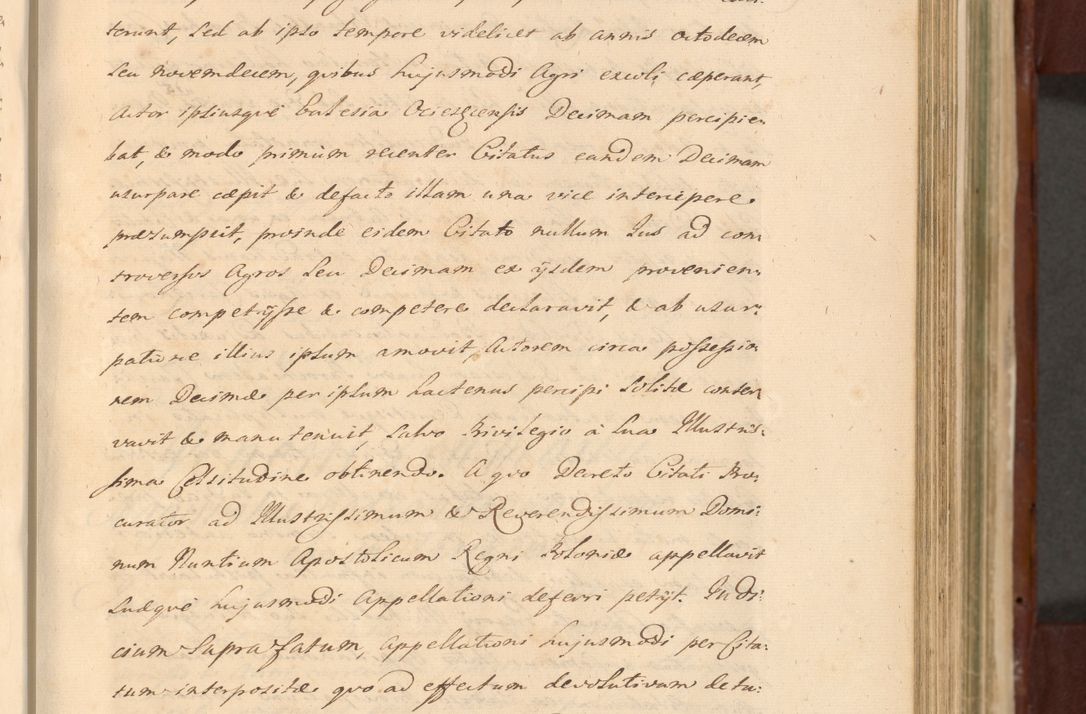 terunt, sed ab ipso tempore videlicet ab annis octodecem
seu novemdecem, quibus hujusmodi Agri excoli cæperant,
Actor ipsiusque Ecclesia Ociesēcensis Decimam percipie-
bat, & modo primùm recenter Citatus eandem Decimam
usurpare cæpit & defacto illam una vice intercipere
præsumpsit, proinde eidem Citato nullum Jus ad con-
troversos Agros seu Decimam ex ijsdem provenien-
tem competijsse & competere declaravit, & ab usur-
patione illius ipsum amovit, Actorem circa possessio-
nem Decimæ per ipsum hactenus percipi solitæ conser-
vavit & manutenuit, salvo Privilegio à sua Illustris-
sima Celsitudine obtinendo. A quo Decreto Citati Pro-
curator ad Illustrissimum & Reverendissimum Domi-
num Nuntium Apostolicum Regni Poloniæ appellavit
suæque hujusmodi Appellationi deferri petijt. Judi-
cium Suprafatum, Appellationi hujusmodi per Cita-
tum interpositæ quo ad effectum devolutivum detu-